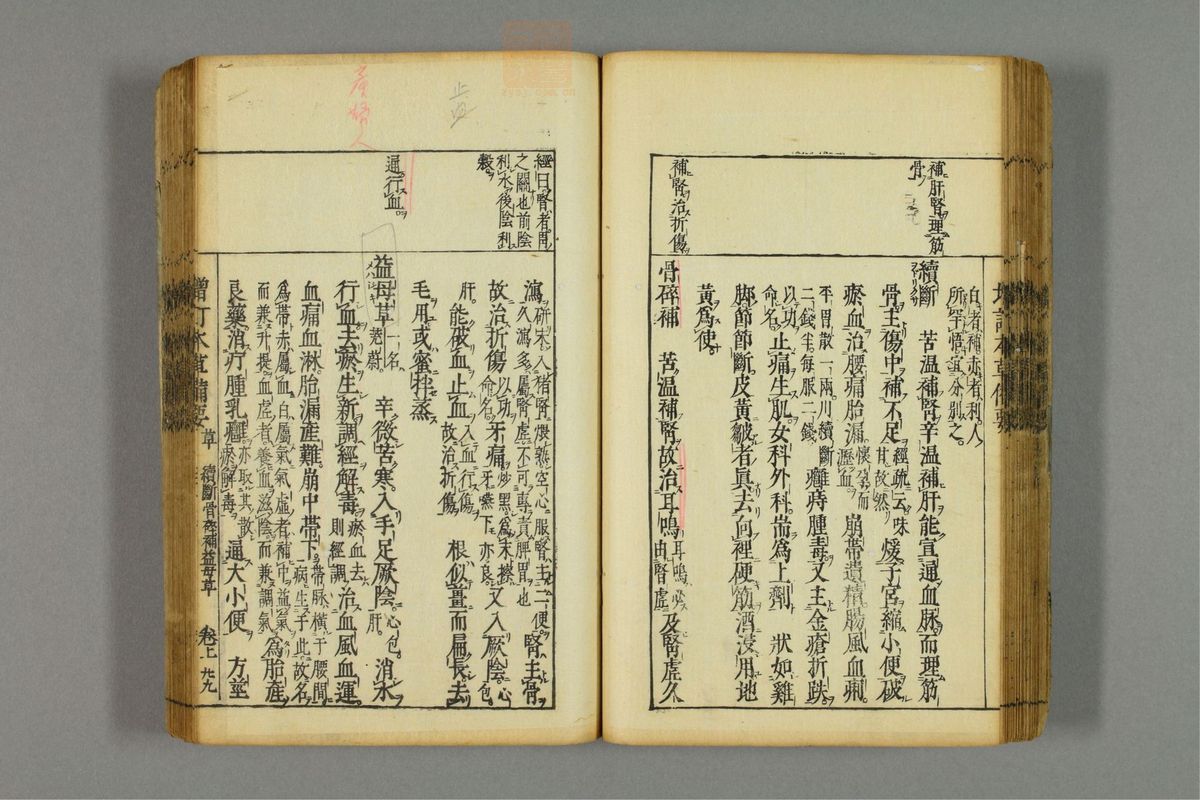 補肝腎理筋
骨
補腎治折傷
白者補赤者利人
所罕骨宜分別之
續斷 苦温補腎辛温補肝能宣通血脉而理筋
骨主傷中補不足經疏云味其故然煖子宮縮小便破
瘀血治腰痛胎漏懷孕而瀝血崩帶遺精腸風血痢
平胃散一兩川續斷二錢半每服二錢癰痔腫毒又主金瘡折跌
以功命名止痛生肌女科外科耑爲上劑 狀如雞
脚節節斷皮黃皺者眞去向裡硬筋酒浸用地
黃爲使
骨碎補 苦温補腎故治耳鳴耳鳴必由腎虛及腎虛久
經曰腎者胃
之關也前陰
利水後陰利
穀
通行血
瀉研末入猪腎煨熟空心服腎主二便久瀉多屬腎虛不可專責脾胃也腎主骨
故治折傷以功命名牙痛炒黑爲末擦牙嚥下亦良又入厥陰心包
肝能破血止血入血行傷故治折傷 根似薑而扁長去
毛用或蜜拌蒸
益母草一名茺蔚 辛微苦寒入手足厥陰心包肝消水
行血去瘀生新調經解毒瘀血去則經調治血風血運
血痛血淋胎漏產難崩中帶下帶脉橫于腰間病生于此故名
爲帶赤屬血白屬氣氣虛者補中益氣而兼升提血虛者養血滋陰而兼調氣爲胎產
良藥消疔腫乳癰亦取其散瘀解毒通大小便 方莖
增訂本草備要 草 續斷骨碎補益母草 卷上 九九
產婦人
止血